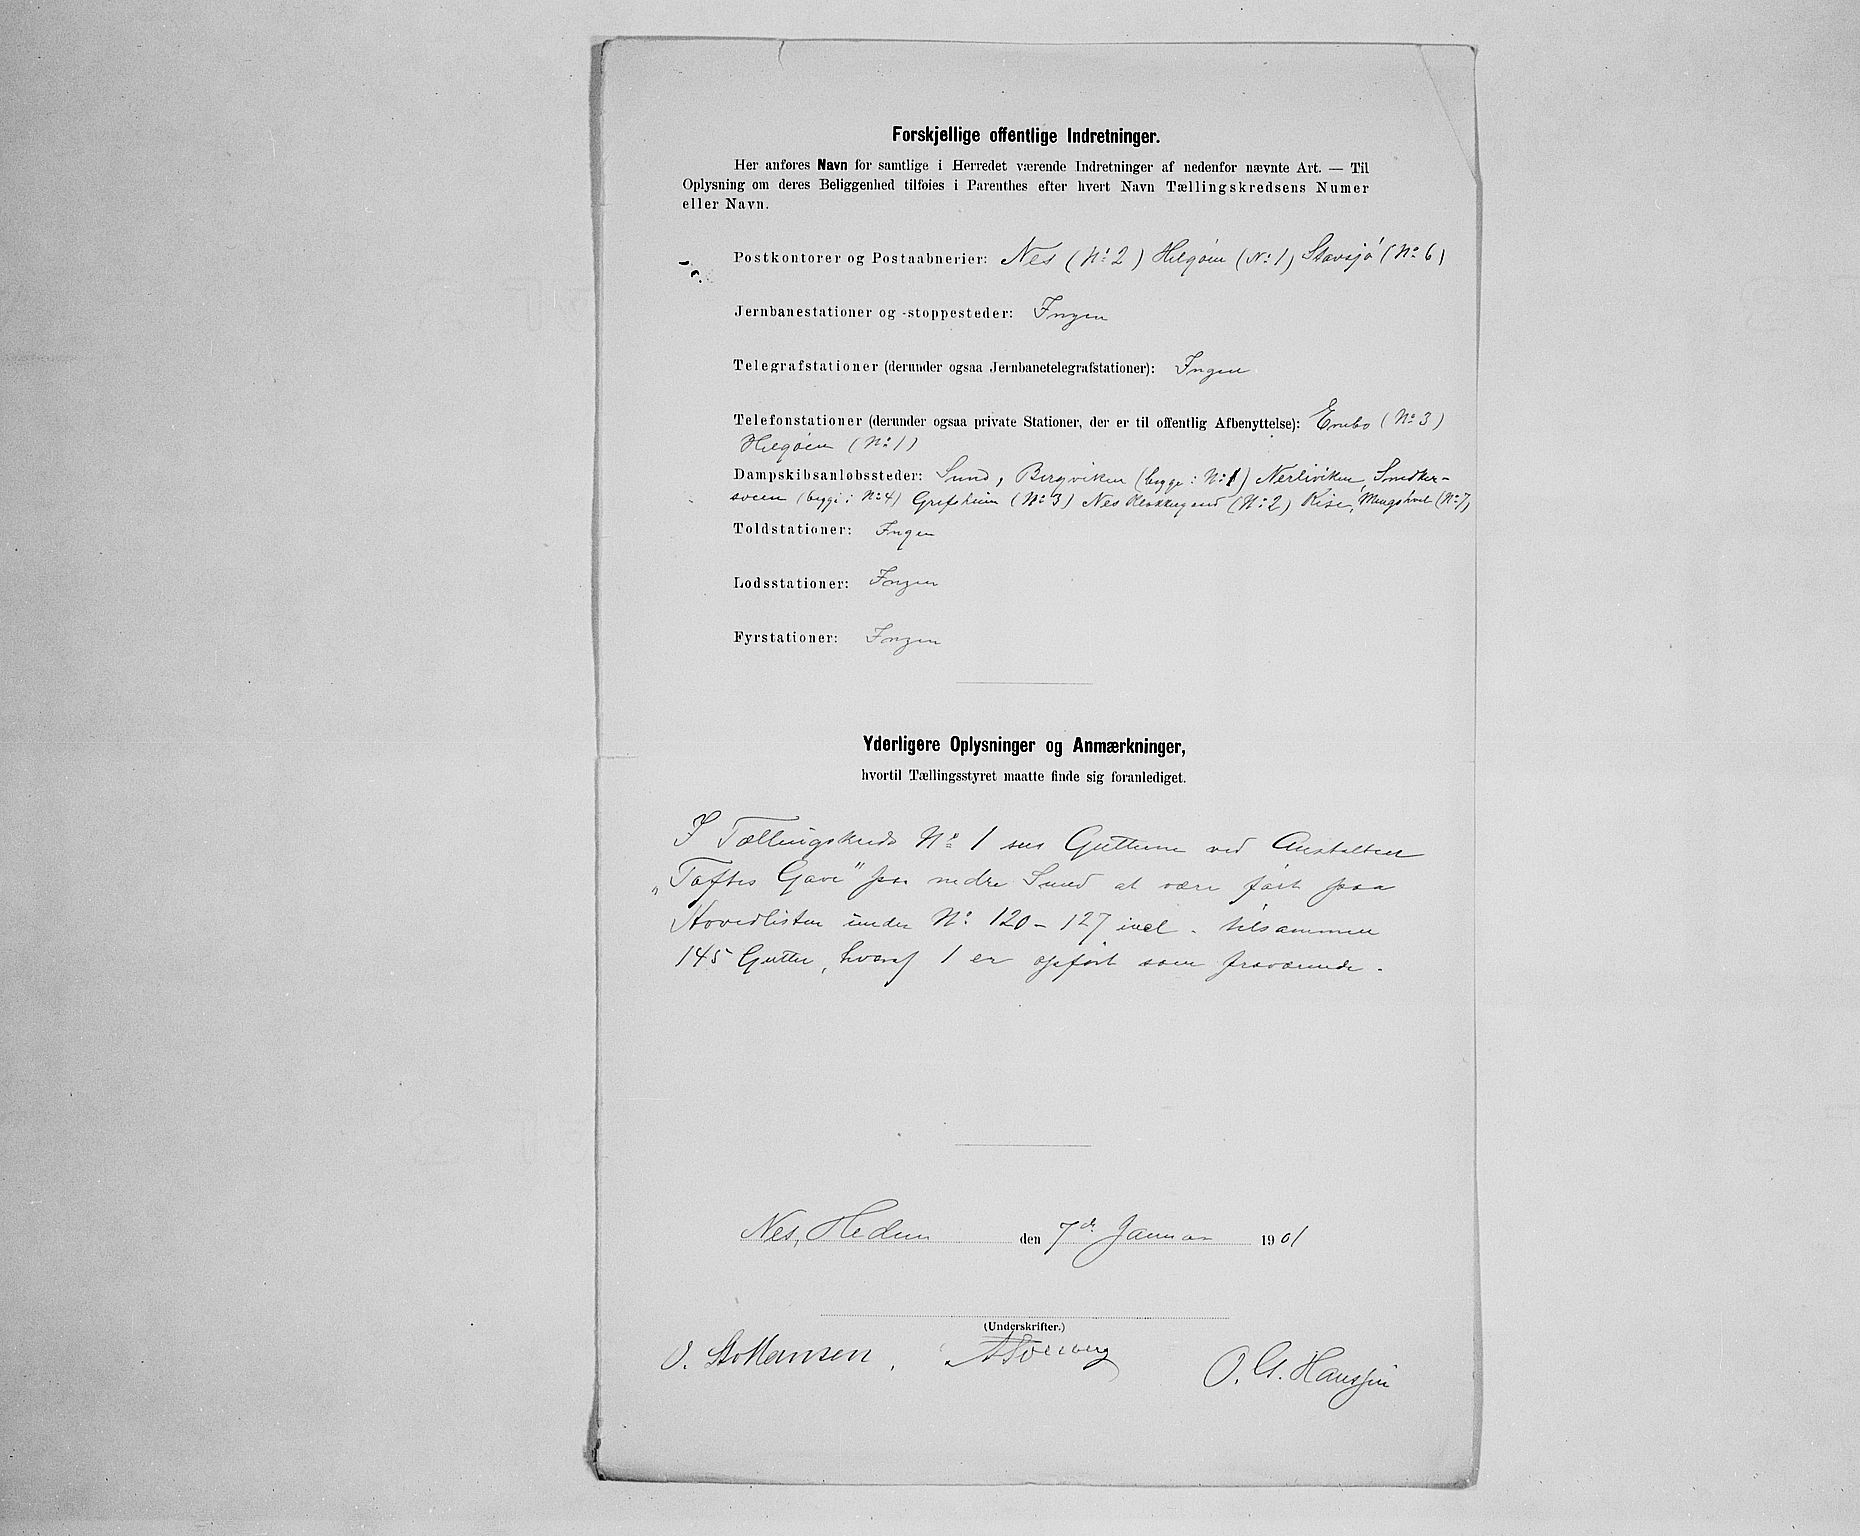 Forskjellige offentlige Indretninger.
Her anføres Navn for samtlige i Herredet værende Indretninger af nedenfor nævnte Art. — Til
Oplysning om deres Beliggenhed tilføies i Parenthes efter hvert Navn Tællingskredsens Numer
eller Navn.
Postkontorer og Postaabnerier: Nes (No 2) Helgøen (No 1) Stavsjø (No 6)
Jernbanestationer og -stoppesteder: Ingen
Telegrafstationer (derunder ogsaa Jernbanetelegrafstationer): Ingen
Telefonstationer (derunder ogsaa private Stationer, der er til offentlig Afbenyttelse): (No 3)
Helgøen (No 1)
Dampskibsanløbssteder: Sund, Bergviken (begge i No 1) Nerliviken,
(begge i No 4) Grefsheim (No 3) Nes (No 2) Rise, (No 7)
Toldstationer: Ingen
Lodsstationer: Ingen
Fyrstationer: Ingen
Yderligere Oplysninger og Anmærkninger,
hvortil Tællingsstyret maatte finde sig foranlediget.
I Tællingskreds No 1 sees Guttene ved Anstalten
„Toftes Gave" paa nedre Sund at være ført paa
Hovedlisten under No 120 - 127 incl. tilsammen
145 Gutter, hvoraf 1 er opført som fraværende.
Nes, Hedm den 7de Januar 1901
(Underskrifter.)
O. G. Hanssen